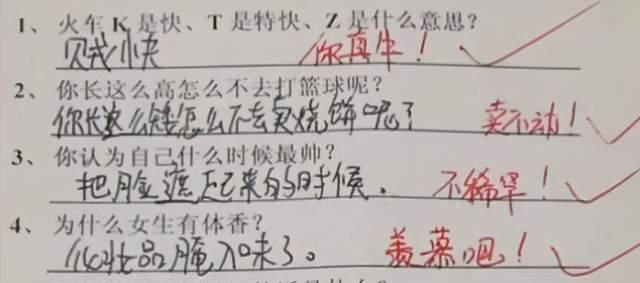 1、火车 K 是快、T 是特快、Z 是什么意思?
贼快 你真牛!
2、你长这么高怎么不去打篮球呢?
你长这么矮怎么不去卖烧饼呢? 卖不动!
3、你认为自己什么时候最帅?
把脸遮起来的时候。 不稀罕!
4、为什么女生有体香?
化妆品腌入味了。 羡慕吧!